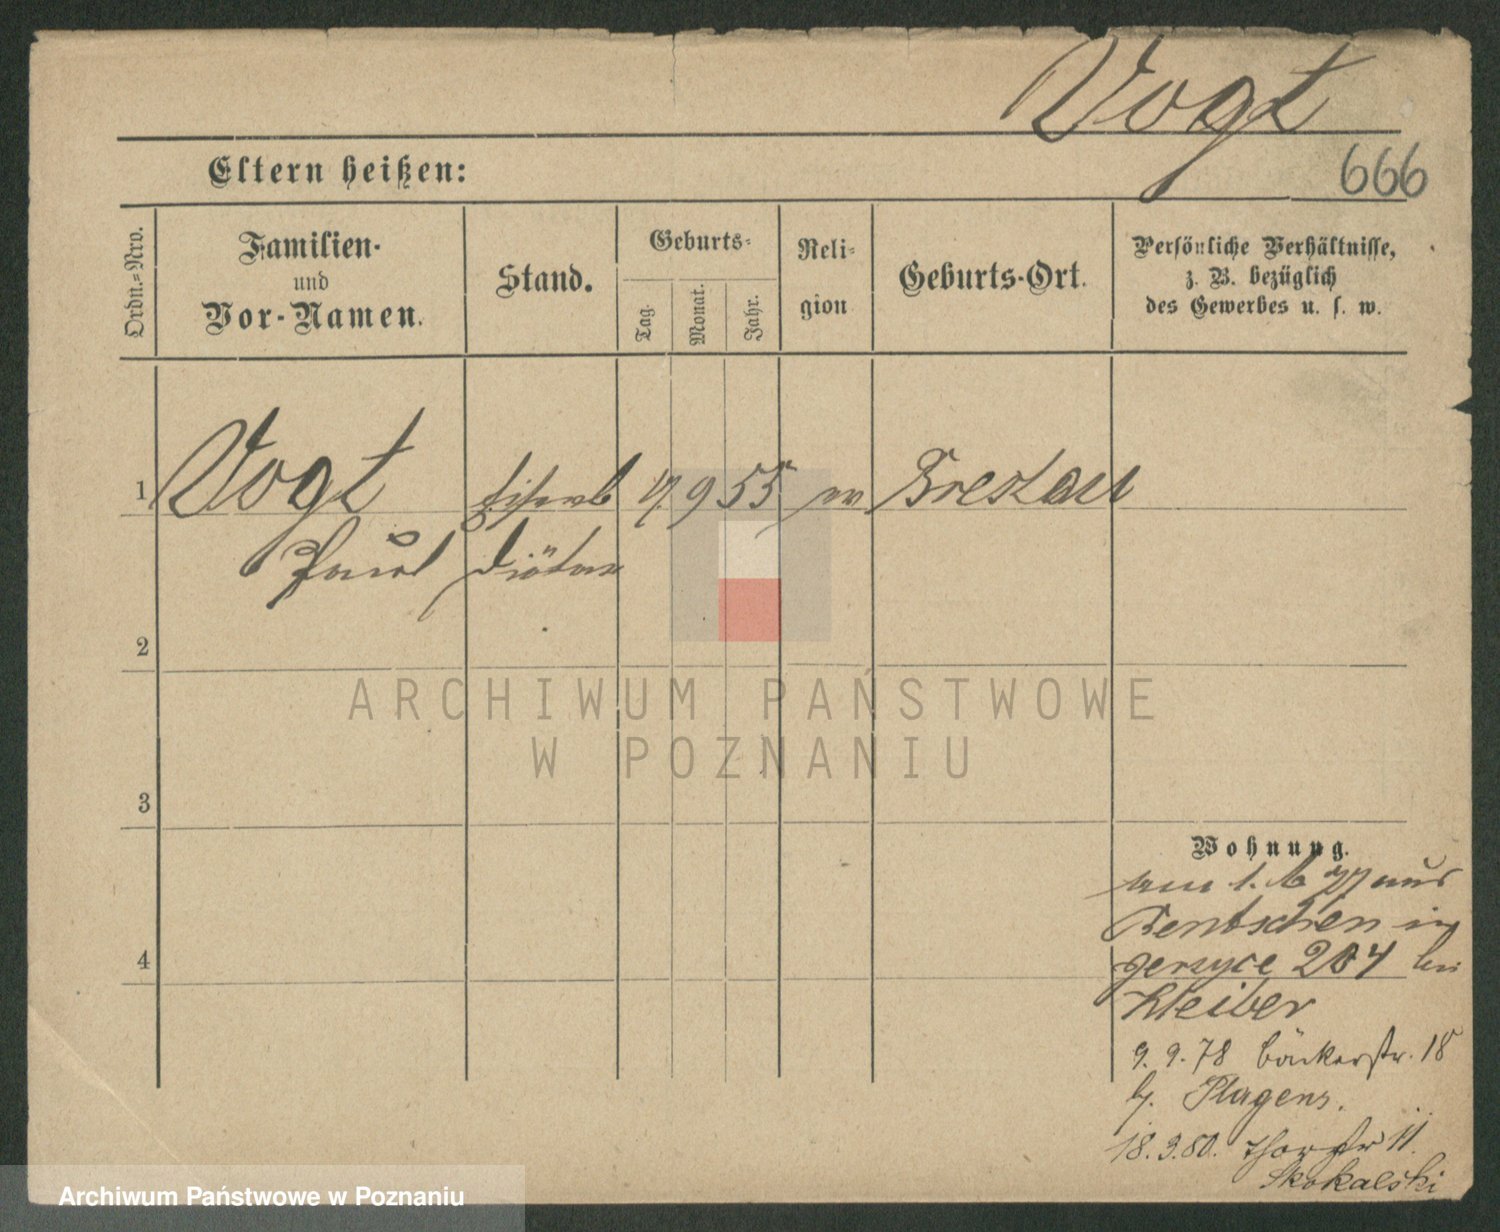 Vogt
666
Eltern heißen:
Ordn.-Nro.
Familien-
und
Vor-Namen.
Stand.
Geburts-
Tag.
Monat.
Jahr.
Reli-
gion
Geburts-Ort.
Persönliche Verhältnisse,
z. B. bezüglich
des Gewerbes u. s. w.
1 Vogt Eisenb 9 55 Breslau
Paul Diätar
2
3
4
ARCHIWUM PAŃSTWOWE
W POZNANIU
Wohnung.
1. 6 77 aus
Bentschen in
Jerzyce 204 bei
Kleiber
9. 9. 78 Bäckerstr. 18
b. Plagens.
18. 3. 80. Thorstr 11.
Skokalski
Archiwum Państwowe w Poznaniu